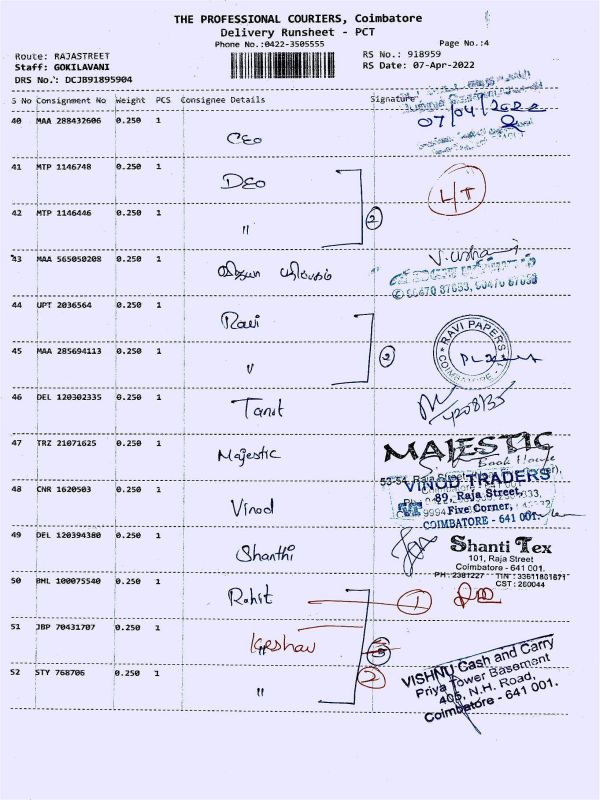 THE PROFESSIONAL COURIERS, Coimbatore
Delivery Runsheet - PCT
Phone No.:0422-3505555
Page No.:4
Route: RAJASTREET
RS No.: 918959
Staff: GOKILAVANI
RS Date: 07-Apr-2022
DRS No.: DCJB91895904
S No Consignment No Weight PCS Consignee Details Signature
07/04/2022
40 MAA 288432606 0.250 1
CEO
41 MTP 1146748 0.250 1
DEO
L/T
42 MTP 1146446 0.250 1
"
2
43 MAA 565050208 0.250 1
V. ushani
44 UPT 2036564 0.250 1
Ravi
RAVI PAPERS
COIMBATORE - 1
45 MAA 285694113 0.250 1
"
2
46 DEL 120302335 0.250 1
Tanit
47 TRZ 21071625 0.250 1
Majestic
MAJESTIC
Book House
48 CNR 1620503 0.250 1
Vinod
VINOD TRADERS
89, Raja Street,
Five Corner,
COIMBATORE - 641 001.
49 DEL 120394380 0.250 1
Shanthi
Shanti Tex
101, Raja Street
Coimbatore - 641 001.
PH : 2381227 TIN : 33611801671
CST : 260044
50 BHL 100075540 0.250 1
Rohit
1
51 JBP 70431707 0.250 1
Keshav
3
52 STY 768706 0.250 1
"
2
VISHNU Cash and Carry
Priya Tower Basement
405, N.H. Road,
Coimbatore - 641 001.